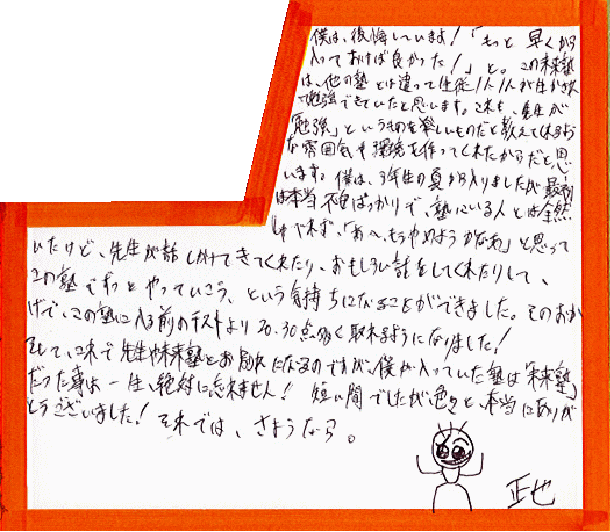 僕は、後悔しています!「もっと早くから
入っておけば良かった!」と。この未来塾
は、他の塾とは違って生徒1人1人が
勉強できていたと思います。これも、先生が
「勉強」というものを楽しいものだと教えてくれるよう
な雰囲気や環境を作ってくれたからだと思
います。僕は、3年生の夏から入りましたが最初
は本当不安ばっかりで、塾にいる人とは全然
しゃべれず、「あ〜、もうやめようかなぁ」と思って
いたけど、先生が話しかけてきてくれたり、おもしろい話をしてくれたりして、
この塾でずっとやっていこう、という気持ちになることができました。そのおか
げで、この塾に入る前のテストより20、30点多く取れるようになりました!
そして、これで先生や未来塾とお別れになるのですが、僕が入っていた塾は「未来塾」
だった事は一生、絶対に忘れません!短い間でしたが、色々と、本当にありが
とうございました!それでは、さようなら。
正也